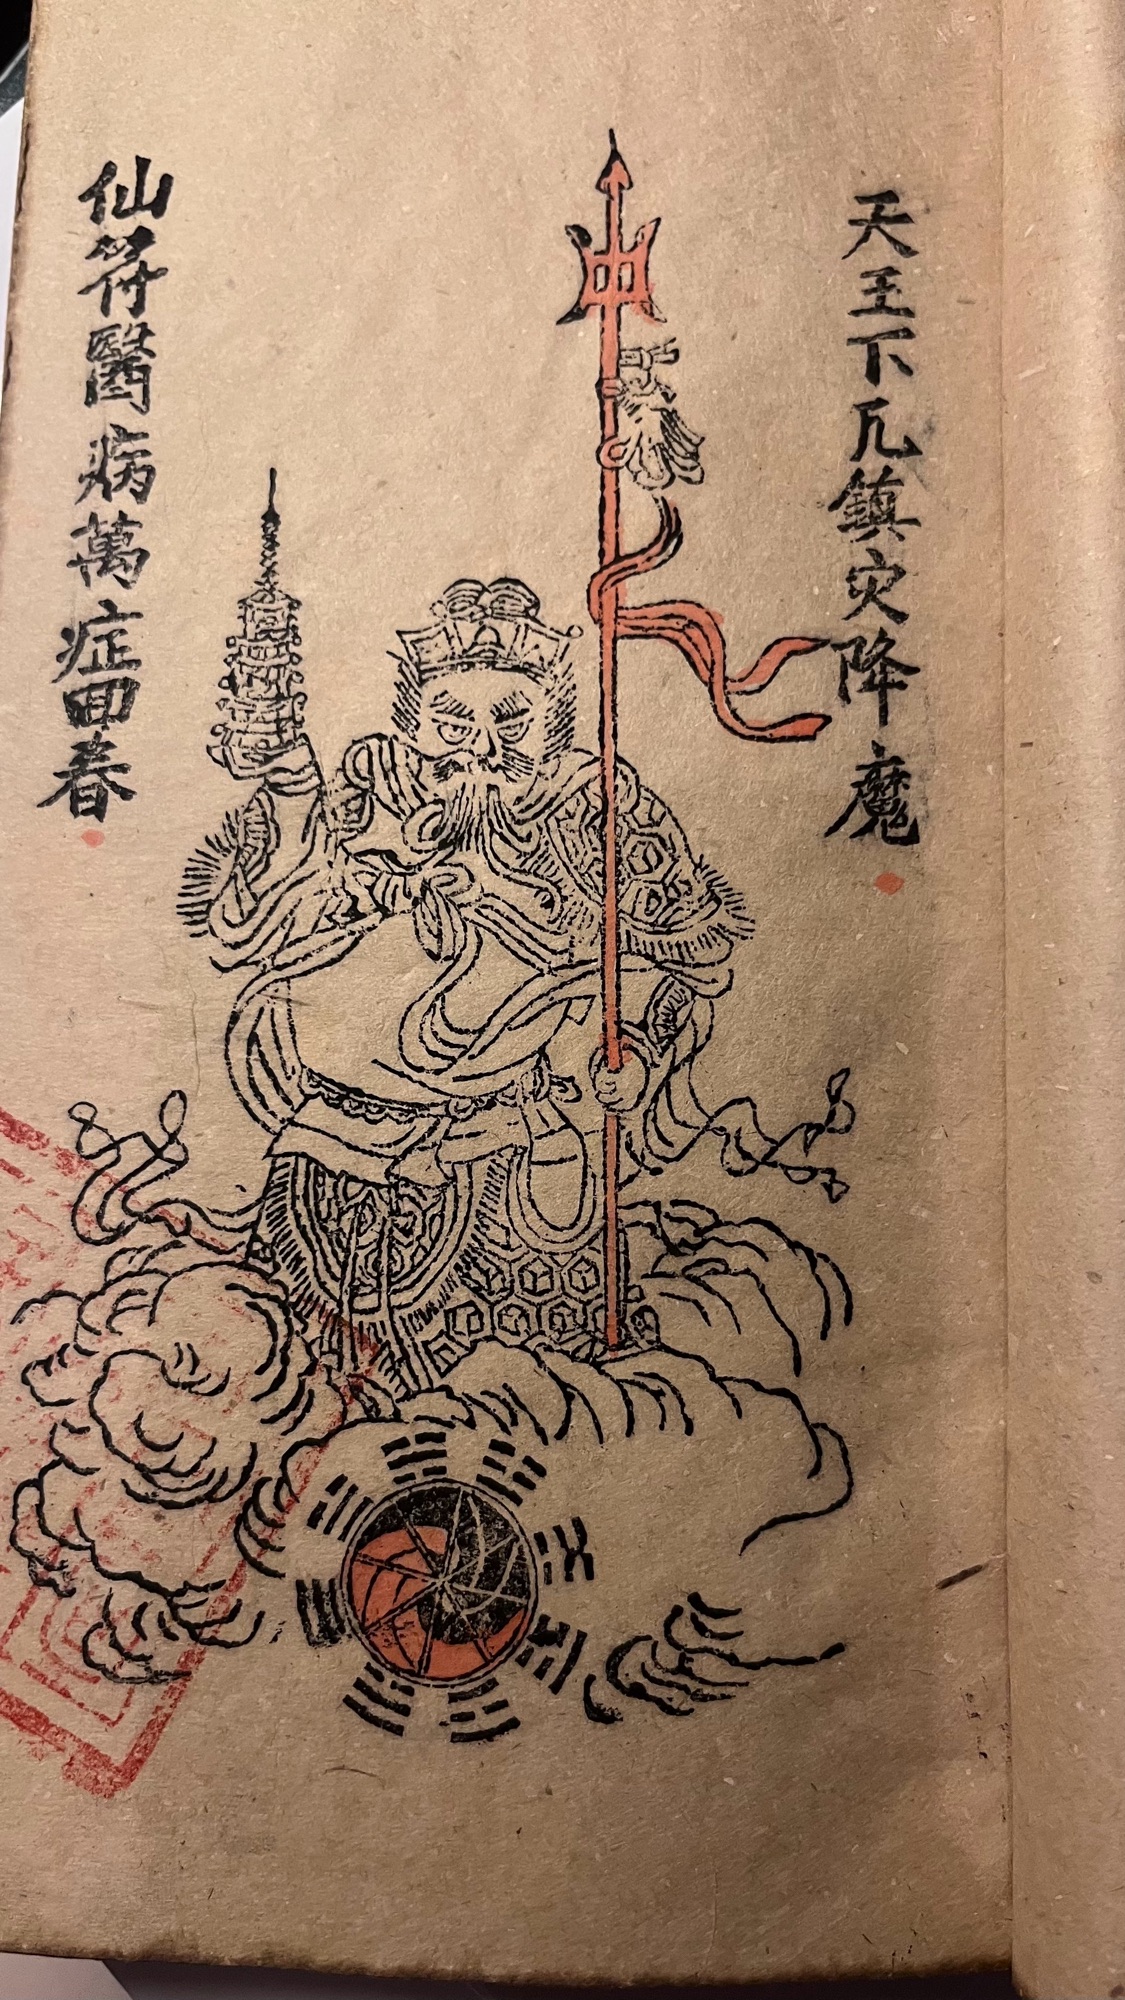 天王下凡鎮灾降魔
仙符醫病萬症回春